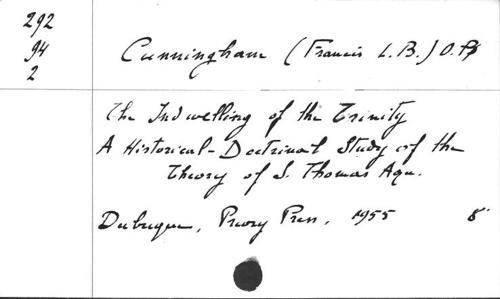 292
94
2
Cunningham (Francis L.B.) O.P.
The Indwelling of the Trinity
A Historical-Doctrinal Study of the
Theory of S. Thomas Aqu.
Dubuque, Priory Press, 1955 8°